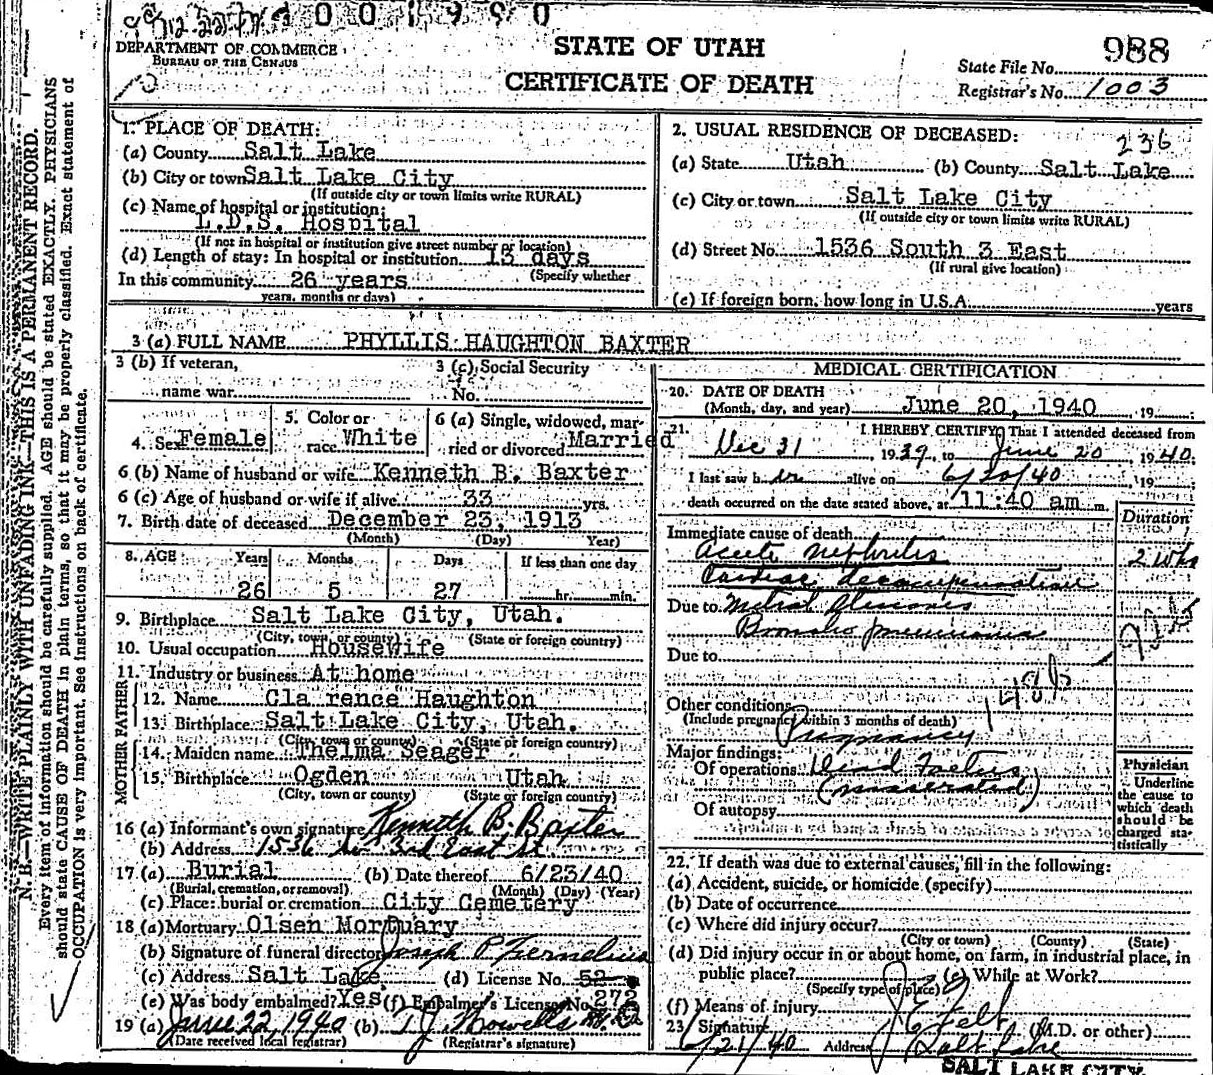 001990
DEPARTMENT OF COMMERCE
BUREAU OF THE CENSUS
STATE OF UTAH
CERTIFICATE OF DEATH
988
State File No.
Registrar's No. 1003
N. B.—WRITE PLAINLY WITH UNFADING INK—THIS IS A PERMANENT RECORD.
Every item of information should be carefully supplied. AGE should be stated EXACTLY. PHYSICIANS
should state CAUSE OF DEATH in plain terms, so that it may be properly classified. Exact statement of
OCCUPATION is very important. See instructions on back of certificate.
1. PLACE OF DEATH:
(a) County Salt Lake
(b) City or town Salt Lake City
(If outside city or town limits write RURAL)
(c) Name of hospital or institution:
L.D.S. Hospital
(If not in hospital or institution give street number or location)
(d) Length of stay: In hospital or institution 13 days
(Specify whether
In this community 26 years
years, months or days)
2. USUAL RESIDENCE OF DECEASED:
236
(a) State Utah (b) County Salt Lake
(c) City or town Salt Lake City
(If outside city or town limits write RURAL)
(d) Street No. 1536 South 3 East
(If rural give location)
(e) If foreign born, how long in U.S.A. years
3 (a) FULL NAME PHYLLIS HAUGHTON BAXTER
3 (b) If veteran,
name war
3 (c) Social Security
No.
4. Sex Female
5. Color or
race White
6 (a) Single, widowed, mar-
ried or divorced Married
6 (b) Name of husband or wife Kenneth B. Baxter
6 (c) Age of husband or wife if alive 33 yrs.
7. Birth date of deceased December 23, 1913
(Month) (Day) Year)
8. AGE Years Months Days If less than one day
26 5 27 hr. min.
9. Birthplace Salt Lake City, Utah.
(City, town, or county) (State or foreign country)
10. Usual occupation Housewife
11. Industry or business At home
FATHER
12. Name Cla rence Haughton
13. Birthplace Salt Lake City, Utah.
(City, town or county) (State or foreign country)
MOTHER
14. Maiden name Thelma Seager
15. Birthplace Ogden Utah
(City, town or county) (State or foreign country)
16 (a) Informant's own signature Kenneth B. Baxter
(b) Address 1536 So 3rd East St.
17 (a) Burial (b) Date thereof 6/23/40
(Burial, cremation, or removal) (Month) (Day) (Year)
(c) Place: burial or cremation City Cemetery
18 (a) Mortuary Olsen Mortuary
(b) Signature of funeral director Joseph P Fernelius
(c) Address Salt Lake, (d) License No. 52
272
(e) Was body embalmed? Yes (f) Embalmer's License No.
19 (a) June 22, 1940 (b) T J Howells M.D
(Date received local registrar) (Registrar's signature)
MEDICAL CERTIFICATION
20. DATE OF DEATH
(Month, day, and year) June 20, 1940, 19
21. I HEREBY CERTIFY, That I attended deceased from
Dec 31, 1939, to June 20 1940.
I last saw h er alive on 6/20/40, 19
death occurred on the date stated above, at 11:40 am m.
Duration
Immediate cause of death
Acute nephritis 2 wks
Cardiac decompensation
Due to Mitral Stenosis
Broncho pneumonia
Due to
148b
Other conditions
(Include pregnancy within 3 months of death)
Pregnancy
Major findings:
Of operations Dead Foetus
(macerated)
Of autopsy
Physician
Underline
the cause to
which death
should be
charged sta-
tistically
22. If death was due to external causes, fill in the following:
(a) Accident, suicide, or homicide (specify)
(b) Date of occurrence
(c) Where did injury occur?
(City or town) (County) (State)
(d) Did injury occur in or about home, on farm, in industrial place, in
public place? (e) While at Work?
(Specify type of place)
(f) Means of injury
23 Signature J E Felt (M.D. or other)
6/21/40 Address Salt Lake
SALT LAKE CITY